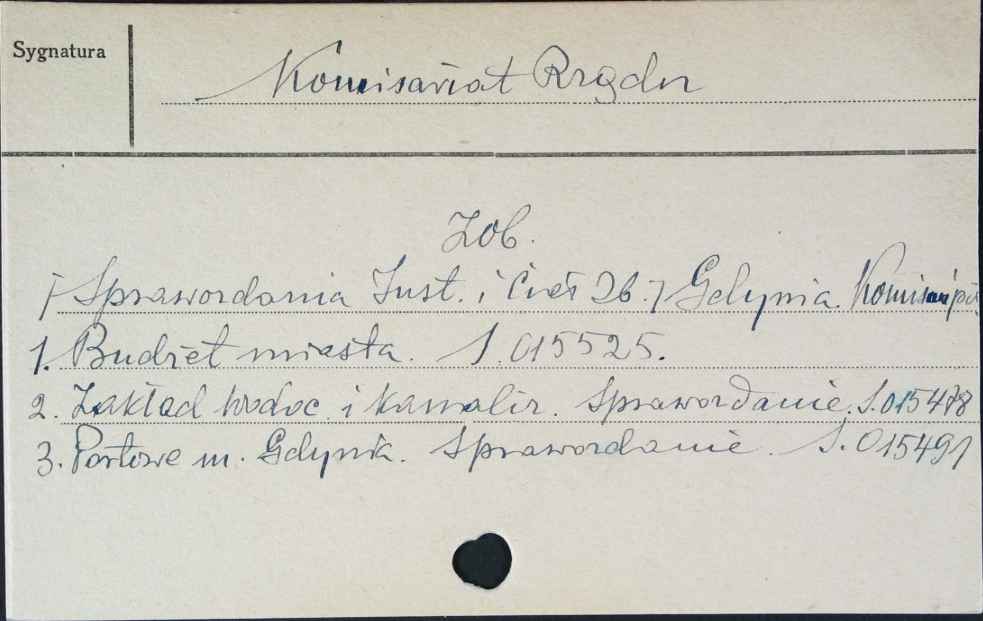 Sygnatura
Komisariat Rządu
Zob.
Sprawozdania Inst. i Ciał Zb. Gdynia. Komisariat
1. Budżet miasta. S.015525.
2. Zakład wodoc. i kanaliz. Sprawozdanie. S.015478
3. Portowe m. Gdynia. Sprawozdanie. S.015491